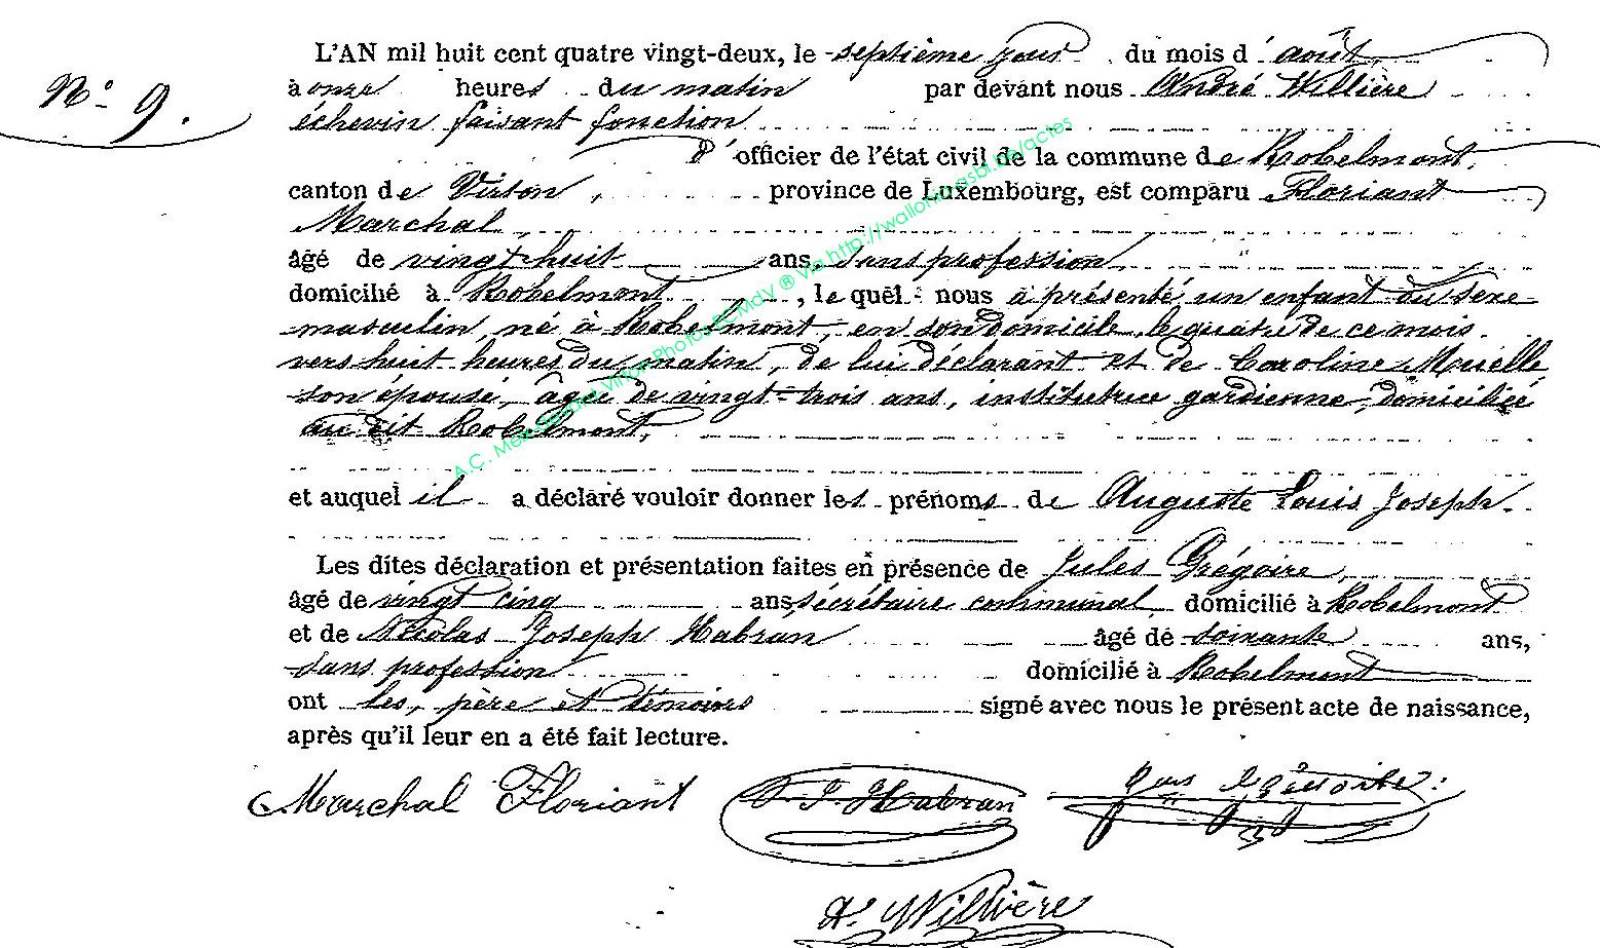 L'AN mil huit cent quatre vingt-deux, le septième jour du mois d'août,
N° 9.
à onze heures du matin par devant nous André Willière
échevin faisant fonction
d'officier de l'état civil de la commune de Robelmont,
canton de Virton, province de Luxembourg, est comparu Floriant
Marchal,
âgé de vingt huit ans, sans profession,
domicilié à Robelmont, le quel nous a présenté un enfant du sexe
masculin, né à Robelmont, en son domicile, le quatre de ce mois
vers huit heures du matin, de lui déclarant et de Caroline
son épouse, âgée de vingt-trois ans, institutrice gardienne, domiciliée
au dit Robelmont,
et auquel il a déclaré vouloir donner les prénoms de Auguste Louis Joseph
Les dites déclaration et présentation faites en présence de Jules Grégoire,
âgé de vingt cinq ans, secrétaire communal, domicilié à Robelmont
et de Nicolas Joseph Habran âgé de soixante ans,
sans profession domicilié à Robelmont
ont les, père et témoins signé avec nous le présent acte de naissance,
après qu'il leur en a été fait lecture.
Marchal Floriant J. Habran
A. Willière
A.C. Photos CMdV ® via http://wallonia.asbl.be/actes